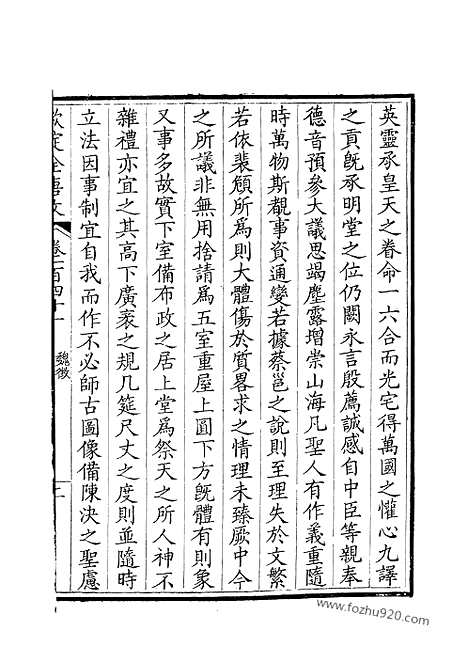 英靈承皇天之眷命一六合而光宅得萬國之懽心九譯
之貢既承明堂之位仍闕永言殷薦誠感自中臣等親奉
德音預參大議思竭塵露增崇山海凡聖人有作義重隨
時萬物斯覩事資通變若據蔡邕之說則至理失於文繁
若依裴頠所爲則大體傷於質畧求之情理未臻厥中今
之所議非無用捨請爲五室重屋上圓下方既體有則象
又事多故實下室備布政之居上堂爲祭天之所人神不
雜禮亦宜之其高下廣袤之規几筵尺丈之度則並隨時
立法因事制宜自我而作不必師古圖像備陳決之聖慮
欽定全唐文 卷一百四十一 魏徵
www.fozhu920.com